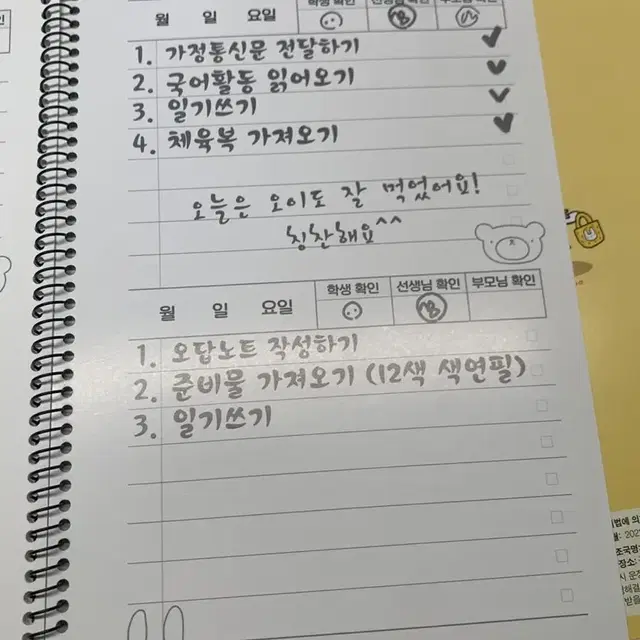 월 일 요일 학생 확인 선생님 확인 부모님 확인
1. 가정통신문 전달하기
2. 국어활동 읽어오기
3. 일기쓰기
4. 체육복 가져오기
오늘은 오이도 잘 먹었어요!
칭찬해요^^
월 일 요일 학생 확인 선생님 확인 부모님 확인
1. 오답노트 작성하기
2. 준비물 가져오기 (12색 색연필)
3. 일기쓰기